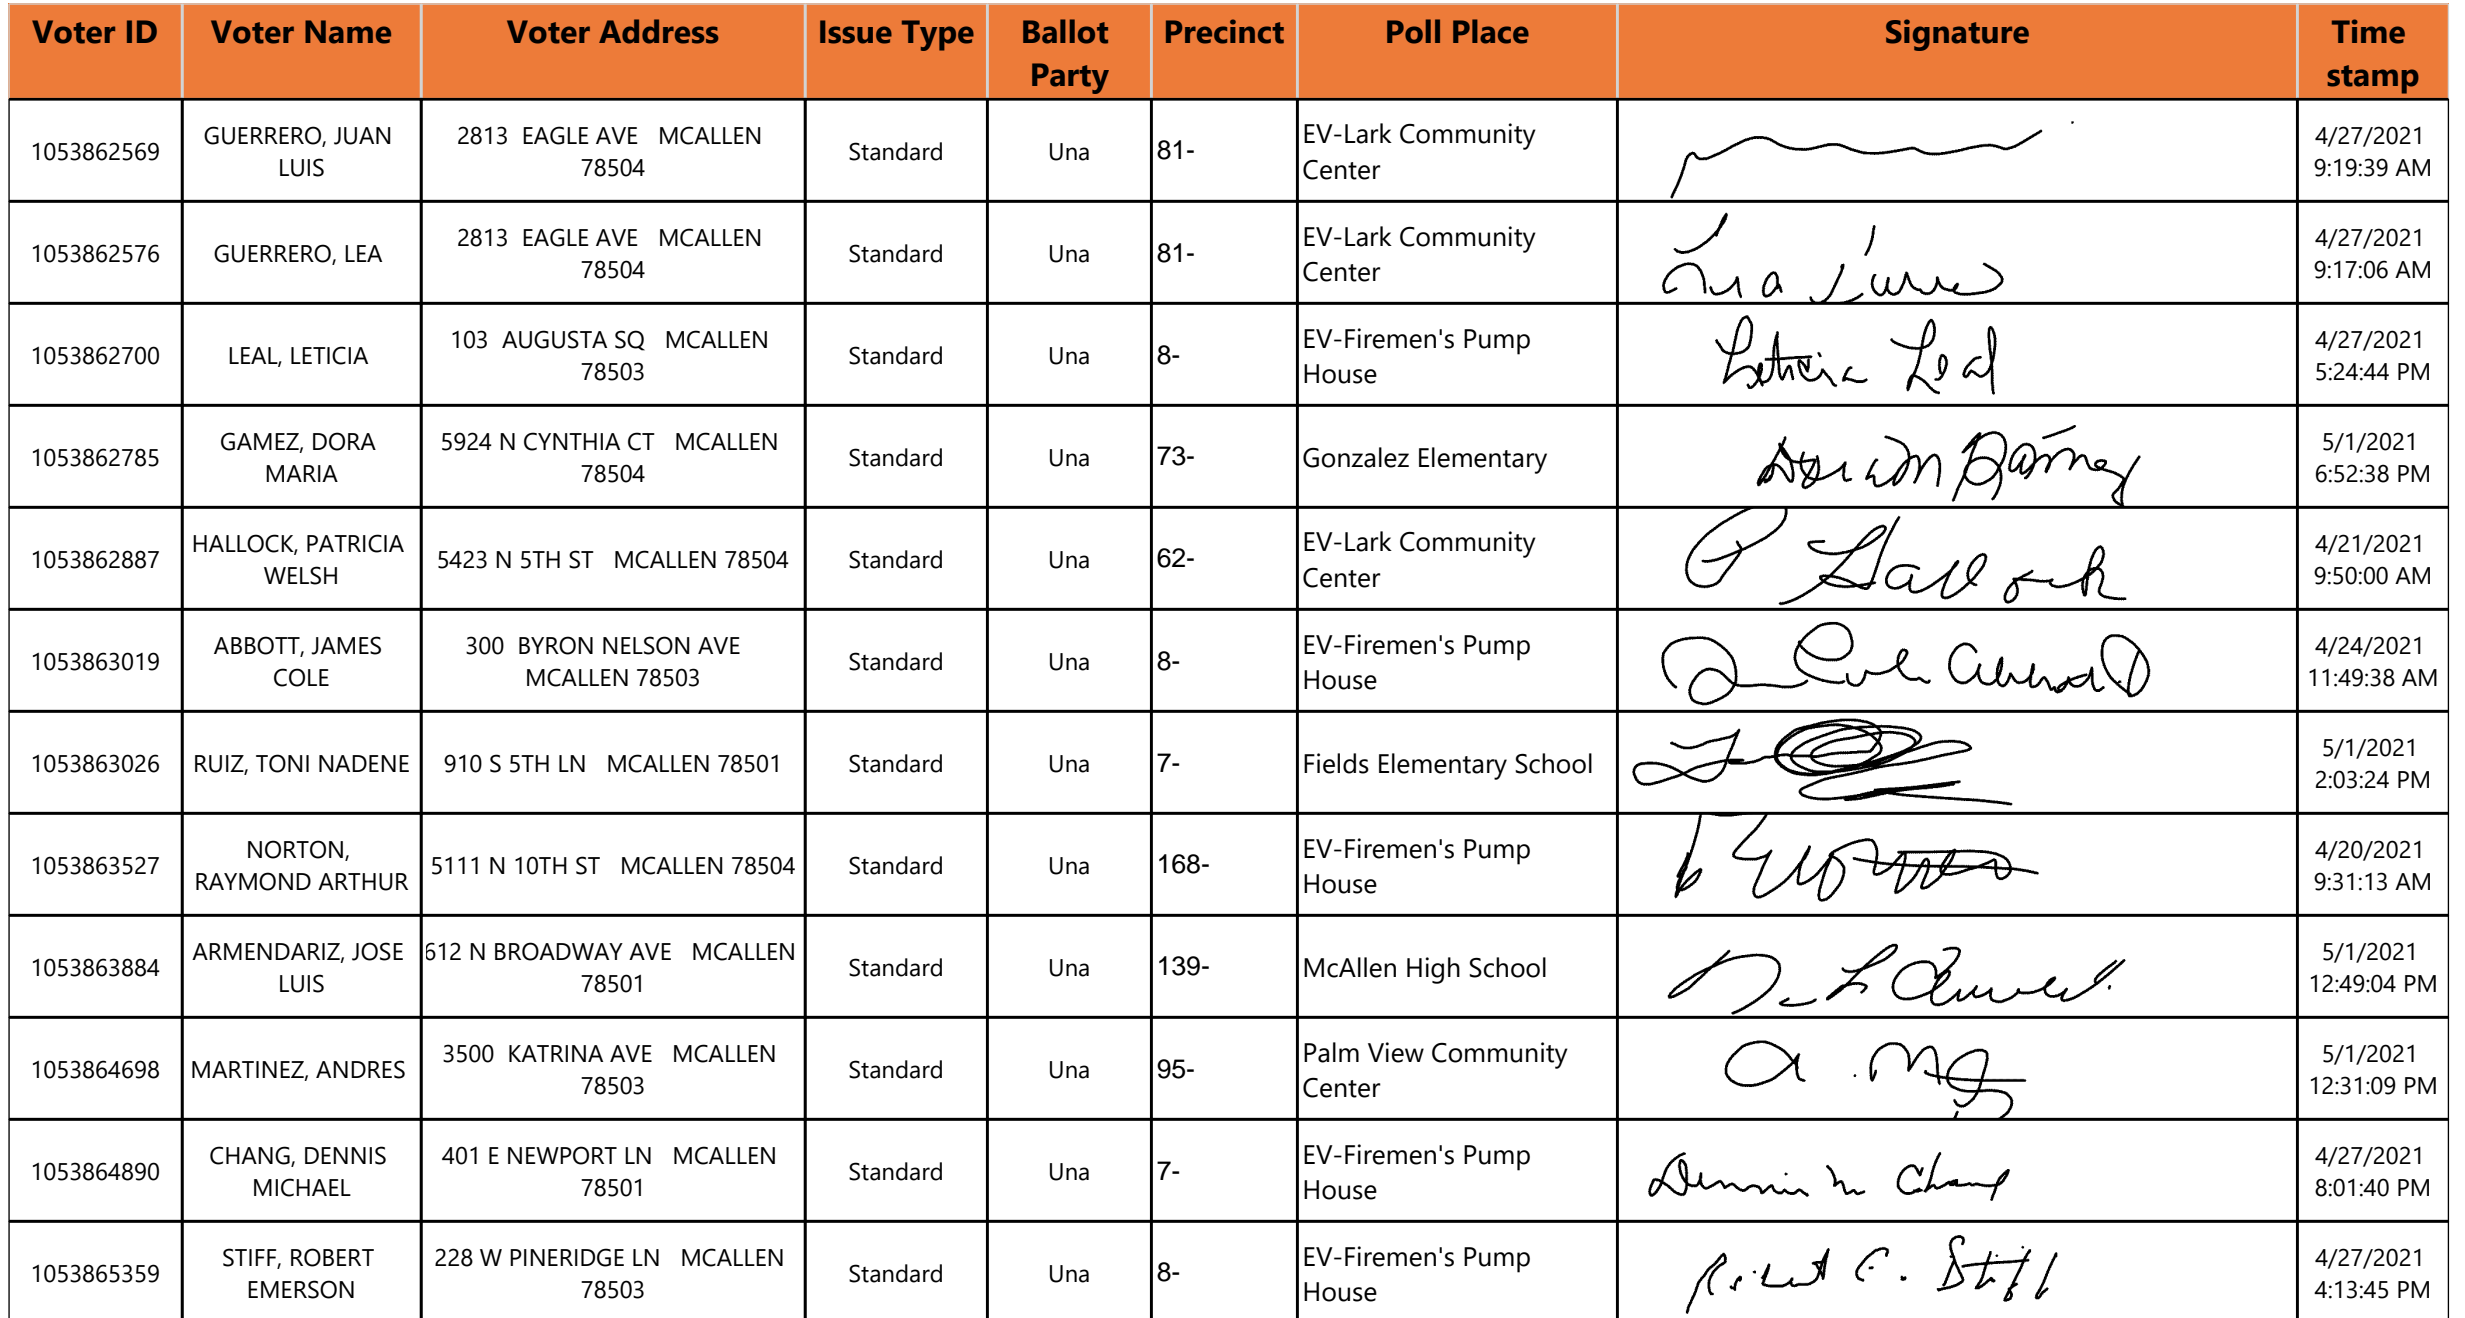 Voter ID Voter Name Voter Address Issue Type Ballot Party Precinct Poll Place Signature Time stamp
1053862569 GUERRERO, JUAN LUIS 2813 EAGLE AVE MCALLEN 78504 Standard Una 81- EV-Lark Community Center 4/27/2021 9:19:39 AM
1053862576 GUERRERO, LEA 2813 EAGLE AVE MCALLEN 78504 Standard Una 81- EV-Lark Community Center 4/27/2021 9:17:06 AM
1053862700 LEAL, LETICIA 103 AUGUSTA SQ MCALLEN 78503 Standard Una 8- EV-Firemen's Pump House Leticia Leal 4/27/2021 5:24:44 PM
1053862785 GAMEZ, DORA MARIA 5924 N CYNTHIA CT MCALLEN 78504 Standard Una 73- Gonzalez Elementary 5/1/2021 6:52:38 PM
1053862887 HALLOCK, PATRICIA WELSH 5423 N 5TH ST MCALLEN 78504 Standard Una 62- EV-Lark Community Center P Hallock 4/21/2021 9:50:00 AM
1053863019 ABBOTT, JAMES COLE 300 BYRON NELSON AVE MCALLEN 78503 Standard Una 8- EV-Firemen's Pump House 4/24/2021 11:49:38 AM
1053863026 RUIZ, TONI NADENE 910 S 5TH LN MCALLEN 78501 Standard Una 7- Fields Elementary School 5/1/2021 2:03:24 PM
1053863527 NORTON, RAYMOND ARTHUR 5111 N 10TH ST MCALLEN 78504 Standard Una 168- EV-Firemen's Pump House 4/20/2021 9:31:13 AM
1053863884 ARMENDARIZ, JOSE LUIS 612 N BROADWAY AVE MCALLEN 78501 Standard Una 139- McAllen High School 5/1/2021 12:49:04 PM
1053864698 MARTINEZ, ANDRES 3500 KATRINA AVE MCALLEN 78503 Standard Una 95- Palm View Community Center 5/1/2021 12:31:09 PM
1053864890 CHANG, DENNIS MICHAEL 401 E NEWPORT LN MCALLEN 78501 Standard Una 7- EV-Firemen's Pump House Dennis M Chang 4/27/2021 8:01:40 PM
1053865359 STIFF, ROBERT EMERSON 228 W PINERIDGE LN MCALLEN 78503 Standard Una 8- EV-Firemen's Pump House Robert E. Stiff 4/27/2021 4:13:45 PM